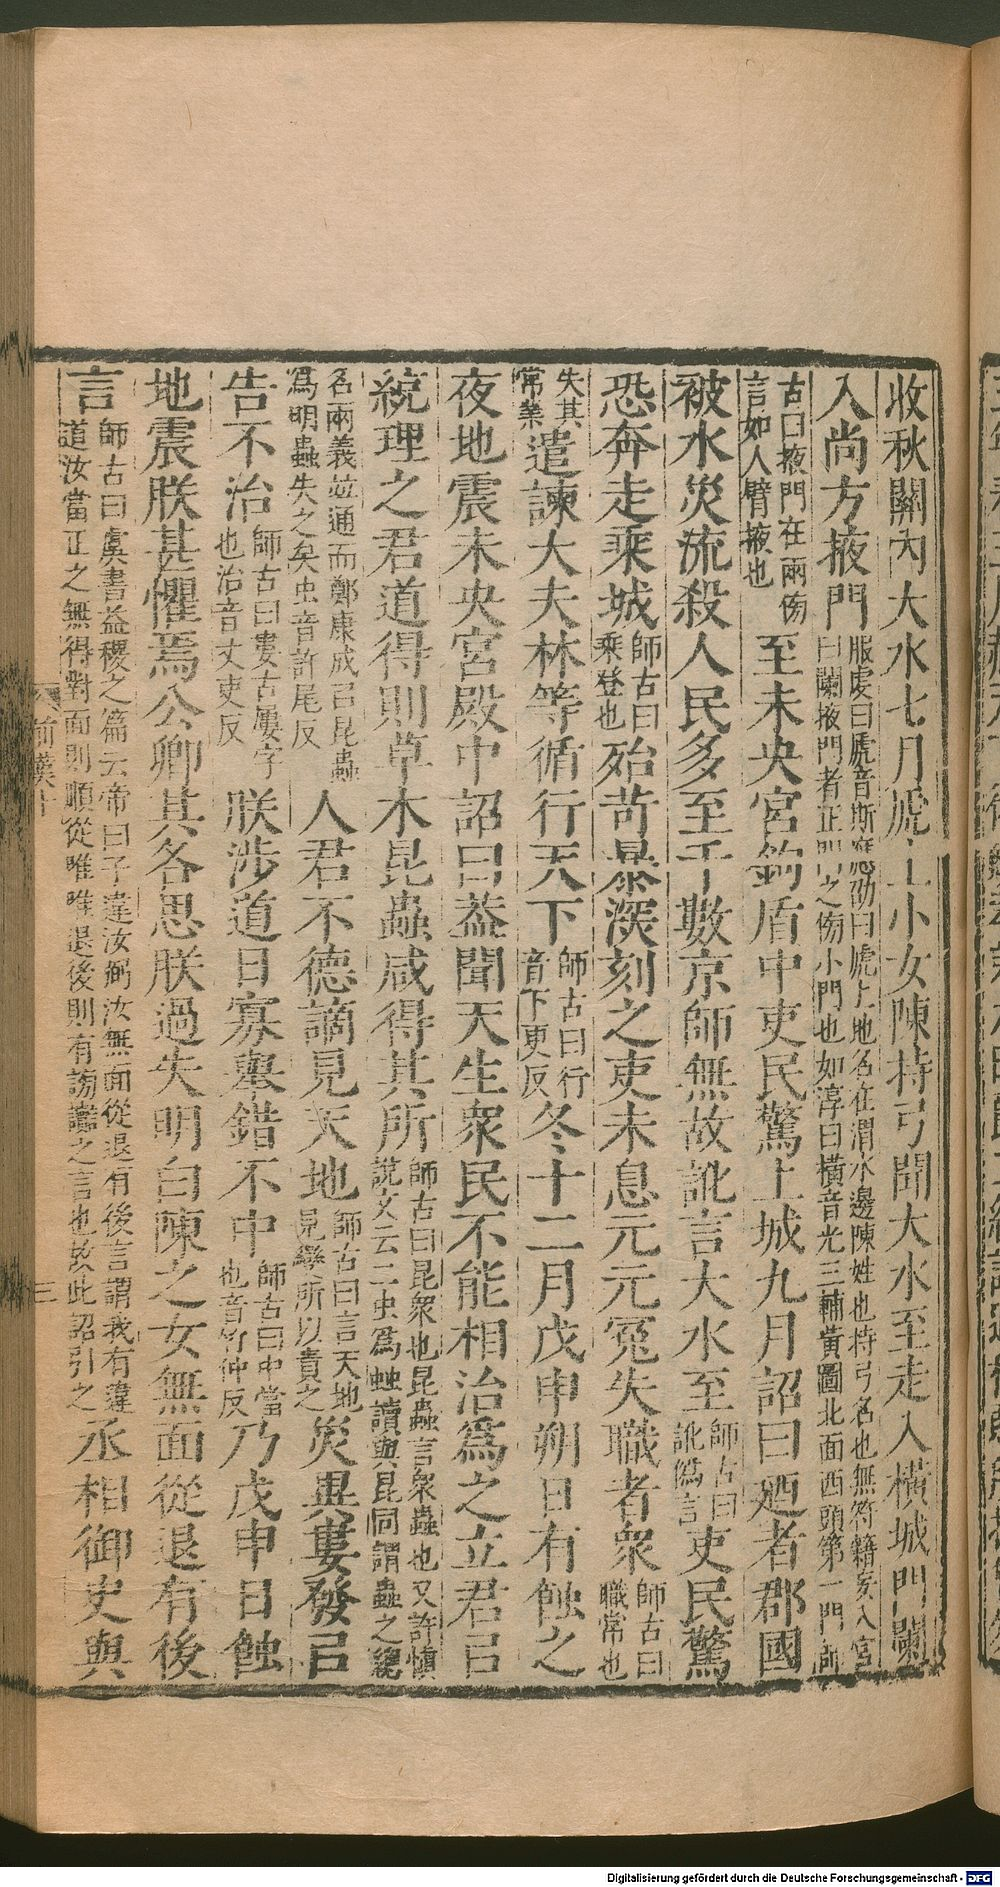 收秋關內大水七月虒上小女陳持弓聞大水至走入橫城門闌
入尚方掖門服虔曰虒音斯應劭曰虒上地名在渭水邊陳姓也持弓名也無符籍妄入宮曰闌掖門者正門之傍小門也如淳曰橫音光三輔黃圖北面西頭第一門師
古曰掖門在兩傍言如人臂掖也至未央宮鉤盾中吏民驚上城九月詔曰迺者郡國
被水災流殺人民多至千數京師無故訛言大水至師古曰訛僞言吏民驚
恐奔走乘城師古曰乘登也殆苛暴深刻之吏未息元元冤失職者衆師古曰職常也
失其常業遣諫大夫林等循行天下師古曰行音下更反冬十二月戊申朔日有蝕之
夜地震未央宮殿中詔曰葢聞天生衆民不能相治爲之立君㠯
統理之君道得則草木昆蟲咸得其所師古曰昆衆也昆蟲言衆蟲也又許愼說文云二虫爲䖵讀與昆同謂蟲之緫
名兩義竝通而鄭康成㠯昆蟲爲明蟲失之矣虫音許尾反人君不德謫見天地師古曰言天地見變所以責之災異婁發㠯
告不治師古曰婁古屢字也治音丈吏反朕涉道日寡舉錯不中師古曰中當也音竹仲反乃戊申日蝕
地震朕甚懼焉公卿其各思朕過失明白陳之女無面從退有後
言師古曰虞書益稷之篇云帝曰予違汝弼汝無面從退有後言謂我有違道汝當正之無得對面則順從唯唯退後則有謗讟之言也故此詔引之丞相御史與
前漢十
三
Digitalisierung gefördert durch die Deutsche Forschungsgemeinschaft - DFG